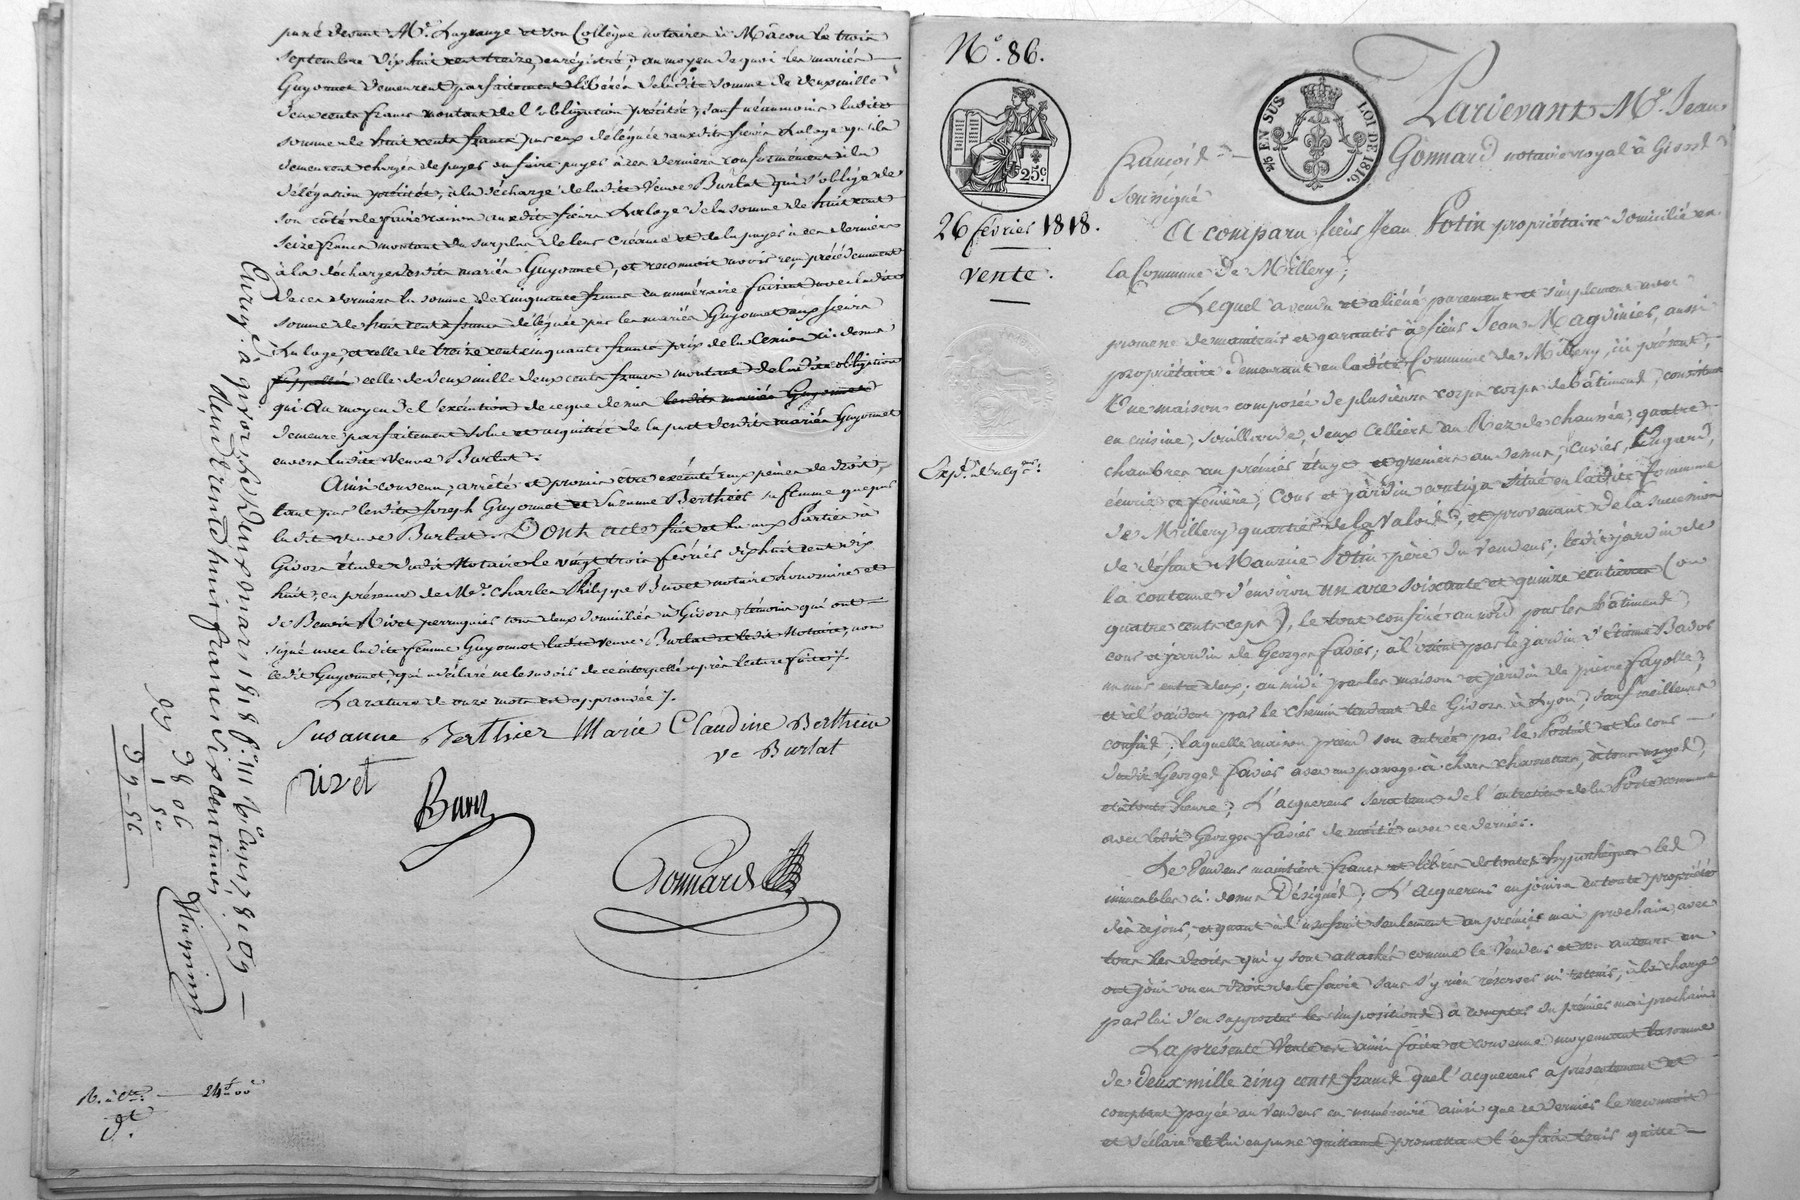 passé devant Me. Lagrange et son Collègue notaires à Mâcon le trois
septembre dix huit cent treize, enrégistré; au moyen de quoi les mariés
Guyonnet demeurent parfaitement libérés de ladite somme de deux mille
deux cents francs montant de l'obligation précitée; sauf néanmoins ladite
somme de huit cents francs par eux déléguée auxdits sieurs qu'ils
demeurent chargés de payer ou faire payer à ces derniers conformément à la
délégation précitée, à la décharge de ladite Veuve Burlat qui s'oblige de
son côté de faire raison auxdits sieurs de la somme de huit cent
seize francs montant du surplus de leur créance et de la payer à ces derniers
à la décharge desdits mariés Guyonnet, et reconnoit avoir reçu précédemment
de ces derniers la somme de cinquante francs en numéraire faisant avec ladite
somme de huit cents francs déléguée par les mariés Guyonnet aux sieurs
et celle de treize cent cinquante francs prix de la Cession ci-dessus
celle de deux mille deux cents francs montant de ladite obligation
qui au moyen de l'exécution de ce que dessus lesdits mariés Guyonnet
demeure parfaitement solue et acquittée de la part desdits mariés Guyonnet
envers ladite Veuve Burlat.
Ainsi convenu, arrêté et promis être exécuté aux peines de droit,
tant par lesdits Joseph Guyonnet et Suzanne Berthier sa femme que par
ladite veuve Burlat. Dont acte fait et lu aux Parties à
Givors étude dudit Notaire le vingt trois février dix huit cent dix
huit, en présence de Me. Charles Philippe Buret notaire honoraire et
de Benoit Rivet perruquier tous deux domiciliés à Givors, témoins qui ont
signé avec ladite femme Guyonnet ladite veuve Burlat et ledit Notaire, non
ledit Guyonnet, qui a déclaré ne le savoir de ce interpellé après lecture faite ./.
La rature de onze mots est approuvée ./.
Susanne Berthier Marie Claudine Berthier
ve Burlat
rivet
Buret
Gonnard
Enrg. à givors, le deux mars 1818 fo. 111
deux francs six centimes
24 f 00 c
No. 86.
25c.
26 février 1818.
Vente.
EN SUS
LOI DE 1816.
Pardevant Me. Jean
François Gonnard notaire royal à Givors
soussigné
A comparu sieur Jean Potin propriétaire domicilié en
la Commune de Millery;
Lequel a vendu et aliéné purement et simplement avec
promesse de maintenir et garantir à sieur Jean Magvinier, aussi
propriétaire demeurant en ladite Commune de Millery, ici présent,
Une maison composée de plusieurs corps corps de bâtiment, consistant
en cuisine, souillarde, deux Celliers au Rez de chaussée, quatre
chambres au premier étage et greniers au dessus, Cuvier, hangard,
écurie et fenière, Cour et jardin contigu situé en ladite Commune
de Millery quartier de la Valois, et provenant de la succession
de défunt Maurice Potin père du vendeur; ledit jardin de
la contenue d'environ un are soixante et quinze centiares (ou
quatre cents ceps), le tout confiné au nord par les bâtiment,
cour et jardin de Georges favier; à l'orient par le jardin d'Etienne Bados
un mur entre deux; au midi par les maison et jardin de pierre Fayolle;
et à l'occident par le chemin tendant de Givors à Lyon; sauf meilleurs
confins: laquelle maison prend son entrée par le Portail et la cour
dudit Georges favier avec un passage à chars charrettes, à tous usages,
et à toute heure; L'acquereur sera tenu de l'entretien de la Porte commune
avec ledit Georges favier de moitié avec ce dernier.
Le Vendeur maintient francs et libres de toutes hypothèques les
immeubles ci-dessus désignés; L'acquereur en jouira en toute propriété
dès ce jour, et quant à l'usufruit seulement au premier mai prochain, avec
tous les droits qui y sont attachés comme le Vendeur et ses auteurs en
ont joui ou eu droit de le faire sans s'y rien réserver ni retenir, à la charge
par lui d'en supporter les impositions à compter du premier mai prochain
La présente Vente est ainsi faite et convenue moyennant la somme
de deux mille cinq cents francs que l'acquereur a présentement et
comptant payée au Vendeur en numéraire ainsi que ce dernier le reconnoit
et déclare et lui en passe quittance promettant l'en faire tenir quitte